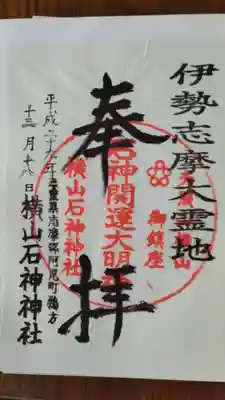 伊勢志摩大霊地
奉拝
御鎮座
石神開運大明神
横山石神神社
三重県志摩郡阿児町鵜方
十二月十八日 横山石神神社